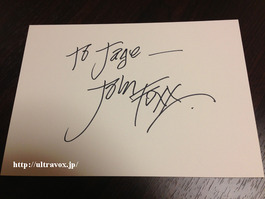 To Jage —
John Foxx.
http://ultravox.jp/